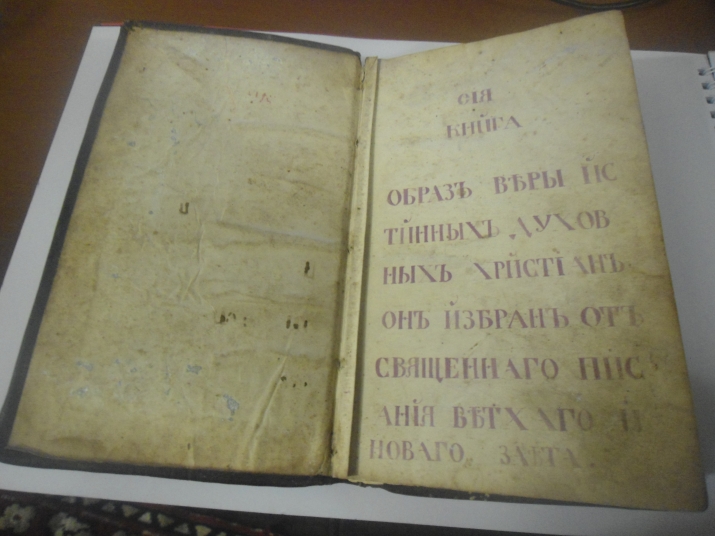 СІЯ
КНЙГА
ОБРАЗЪ ВѢРЫ ЙС
ТЙННЫХЪ ДУХОВ
НЫХЪ ХРЙСТІАНЪ
ОНЪ ЙЗБРАНЪ ОТЪ
СВЯЩЕННАГО ПЙС
АНІЯ ВѢТХАГО Й
НОВАГО